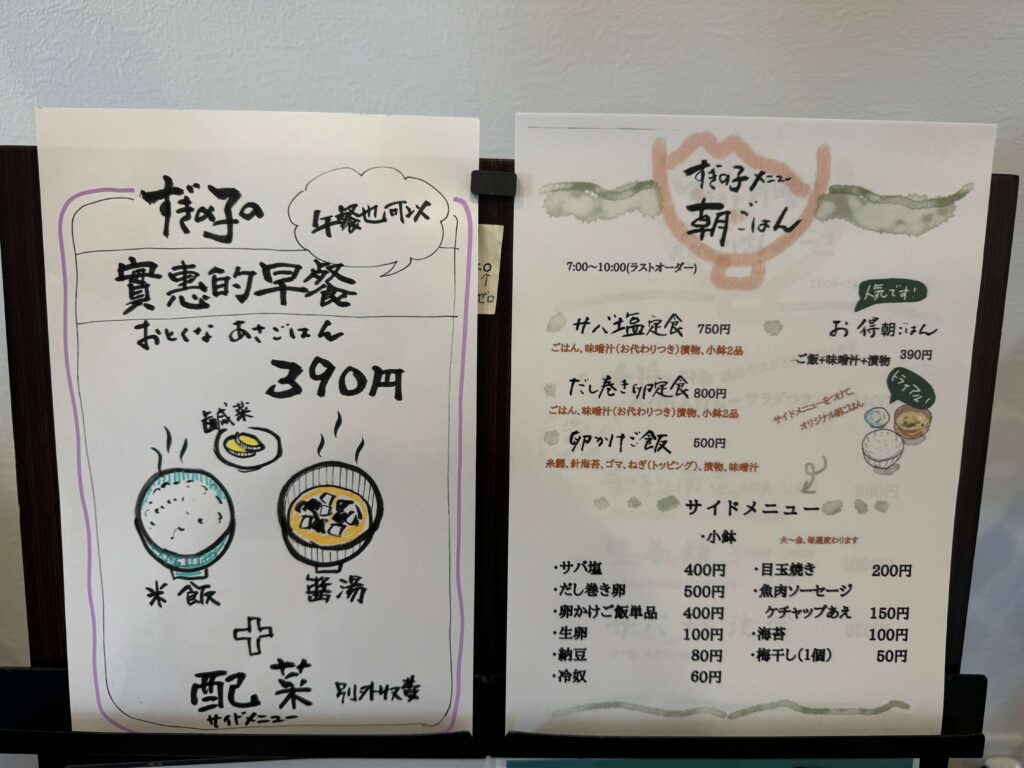 すぎの子の
午餐也可以
實惠的早餐
おとくな あさごはん
390円
鹹菜
米飯
醬湯
+
配菜
サイドメニュー
別外收費
すぎの子メニュー
朝ごはん
7:00～10:00(ラストオーダー)
サバ塩定食 750円
ごはん、味噌汁(お代わりつき)漬物、小鉢2品
だし巻き卵定食 800円
ごはん、味噌汁(お代わりつき)漬物、小鉢2品
卵かけご飯 500円
糸鰹、針海苔、ゴマ、ねぎ(トッピング)、漬物、味噌汁
人気です!
お得朝ごはん
ご飯+味噌汁+漬物 390円
トライアル!
サイドメニューをつけて、
オリジナル朝ごはん
サイドメニュー
・小鉢 火～金、毎週変わります
・サバ塩 400円
・だし巻き卵 500円
・卵かけご飯単品 400円
・生卵 100円
・納豆 80円
・冷奴 60円
・目玉焼き 200円
・魚肉ソーセージ
ケチャップあえ 150円
・海苔 100円
・梅干し(1個) 50円